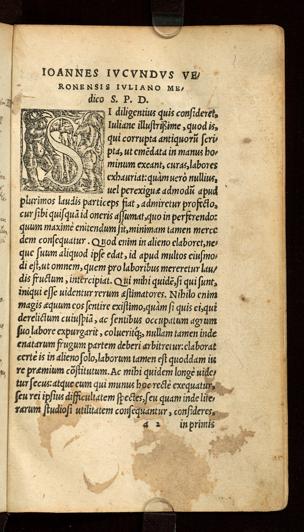 IOANNES IVCVNDVS VE/
RONENSIS IVLIANO ME/
dico S. P. D.
SI diligentius quis consideret,
Iuliane illustrißime, quod is,
qui corrupta antiquorũ scri
pta, ut emẽdata in manus ho
minum exeant, curas, labores
exhauriat: quàm uerò nullius,
uel perexiguæ admodũ apud
plurimos laudis particeps fiat, admiretur profectò,
cur sibi quisquã id oneris assumat, quo in perferendo:
quum maximè enitendum sit, minimam tamen merce
dem consequatur. Quod enim in alieno elaboret, ne/
que suum aliquod ipse edat, id apud multos eiusmo/
di est, ut omnem, quem pro laboribus mereretur lau/
dis fructum, intercipiat. Qui mihi quidẽ, si qui sunt,
iniqui esse uidentur rerum æstimatores. Nihilo enim
magis æquum eos sentire existimo, quàm si quis ei, qui
derelictum cuiuspiã, ac sentibus occupatum agrum
suo labore expurgarit, colueritq́;, nullam tamen inde
enatarum frugum partem deberi arbitretur: elaborat
certè is in alieno solo, laborum tamen est quoddam iu
re præmium cõstitutum. Ac mihi quidem longè uide/
tur secus: atque cum qui munus hoc rectè exequatur,
seu rei ipsius difficultatem spectes, seu quam inde lite/
rarum studiosi utilitatem consequantur, consideres,
a 2 in primis